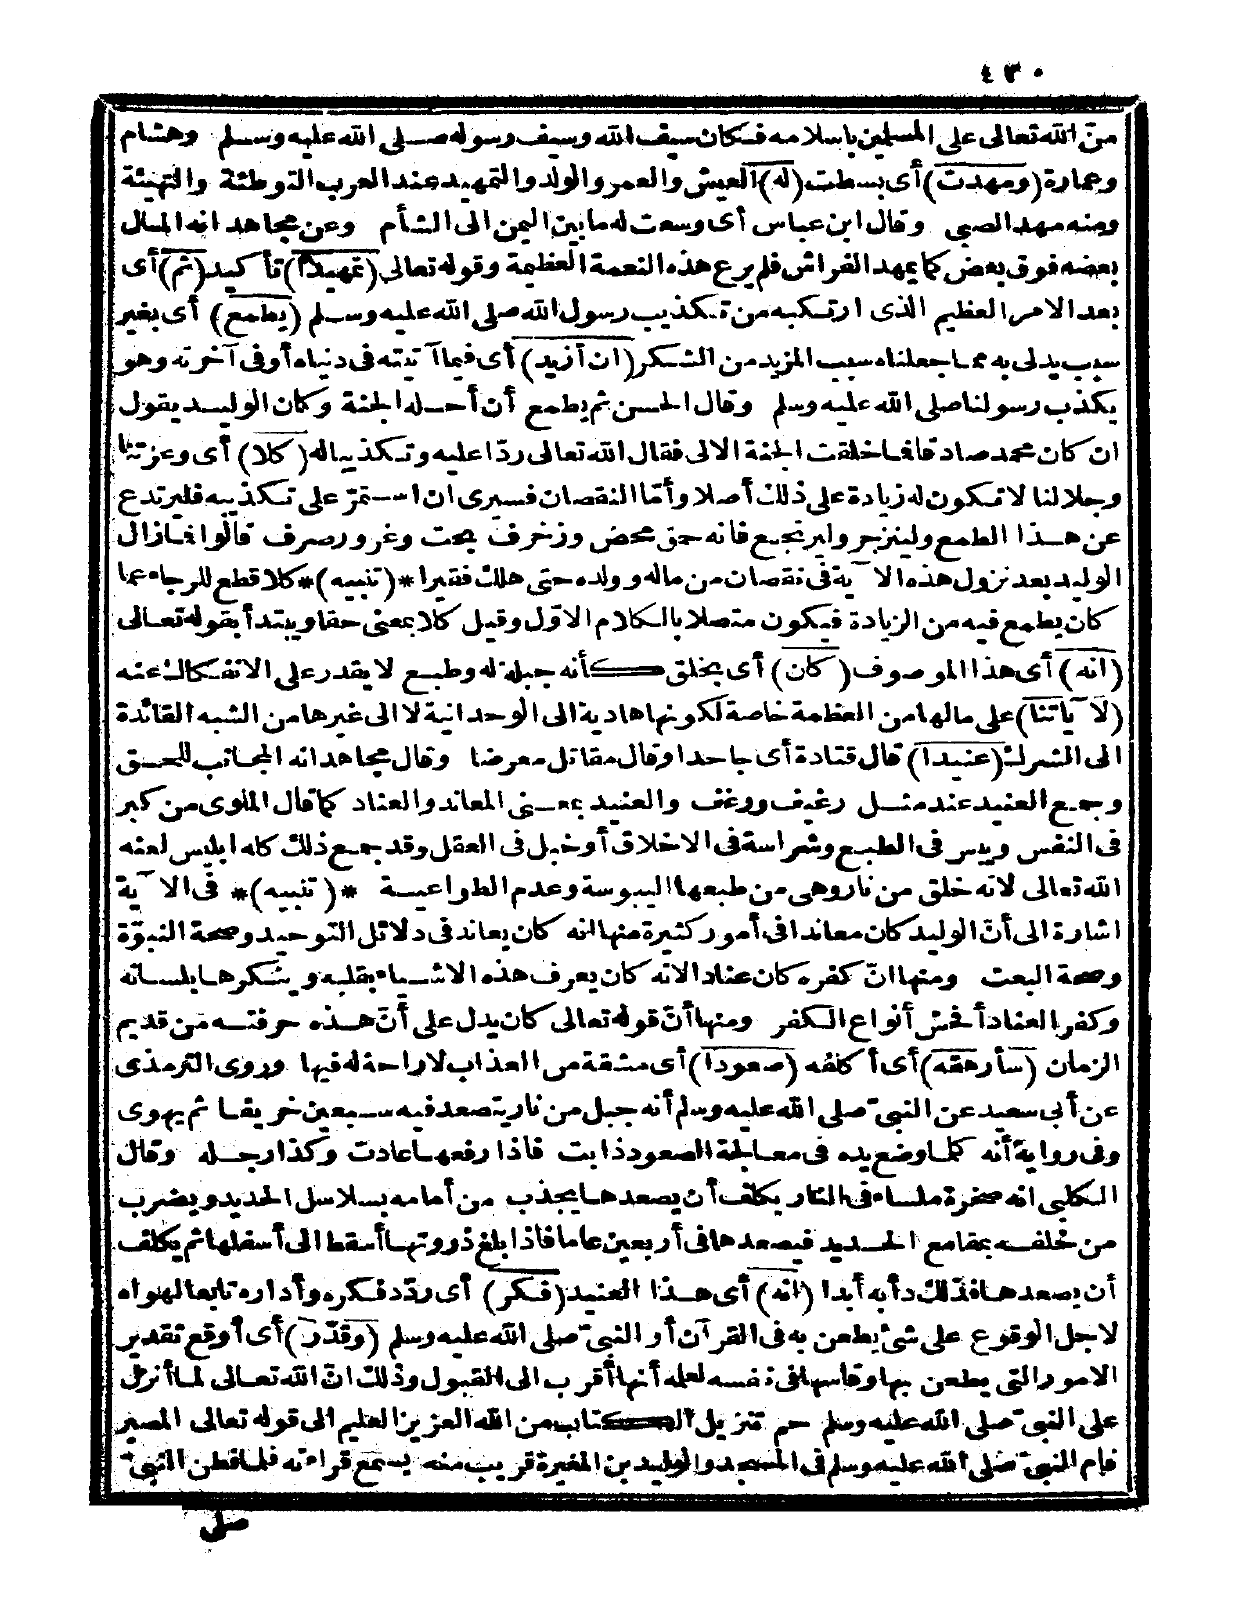 ٤٣٠
منّ الله تعالى على المسلمين باسلامه فكان سيف الله وسيف رسوله صلى الله عليه وسلم وهشام
وعمارة (ومهدت) أى بسطت (له) العيش والعمر والولد والتمهيد عند العرب التوطئة والتهيئة
ومنه مهد الصبى وقال ابن عباس أى وسعت له ما بين اليمن الى الشأم وعن مجاهد انه المال
بعضه فوق بعض كما يمهد الفراش فلم يرع هذه النعمة العظيمة وقوله تعالى (تمهيدا) تأكيد (ثم) أى
بعد الامر العظيم الذى ارتكبه من تكذيب رسول الله صلى الله عليه وسلم (يطمع) أى بغير
سبب يدلى به مما جعلناه سبب المزيد من الشكر (ان أزيد) أى فيما آتيته فى دنياه أوفى آخرته وهو
يكذب رسولنا صلى الله عليه وسلم وقال الحسن ثم يطمع أن أدخله الجنة وكان الوليد يقول
ان كان محمد صادقا فما خلقت الجنة الالى فقال الله تعالى ردّا عليه وتكذيبا له (كلا) أى وعزتنا
وجلالنا لا تكون له زيادة على ذلك أصلا وأمّا النقصان فسيرى ان استمرّ على تكذيبه فليرتدع
عن هذا الطمع ولينزجر وليرتجع فانه حمق محض وزخرف بحت وغرور صرف قالوا فما زال
الوليد بعد نزول هذه الآية فى نقصان من ماله وولده حتى هلك فقيرا *(تنبيه)* كلا قطع للرجاء عما
كان يطمع فيه من الزيادة فيكون متصلا بالكلام الاوّل وقيل كلا بمعنى حقا ويبتدأ بقوله تعالى
(انه) أى هذا الموصوف (كان) أى بخلق كأنه جبلة له وطبع لا يقدر على الانفكاك عنه
(لآياتنا) على مالها من العظمة خاصة لكونها هادية الى الوحدانية لا الى غيرها من الشبه القائدة
الى الشرك (عنيدا) قال قتادة أى جاحدا وقال مقاتل معرضا وقال مجاهد انه المجانب للحق
وجمع العنيد عند مثل رغيف ورغف والعنيد بمعنى المعاند والعناد كما قال الملوى من كبر
فى النفس ويبس فى الطبع وشراسة فى الاخلاق أو خبل فى العقل وقد جمع ذلك كله ابليس لعنه
الله تعالى لانه خلق من نار وهى من طبعها اليبوسة وعدم الطواعية *(تنبيه)* فى الآية
اشارة الى أنّ الوليد كان معاندا فى أمور كثيرة منها انه كان يعاند فى دلائل التوحيد وصحة النبوّة
وصحة البعث ومنها انّ كفره كان عنادا لانه كان يعرف هذه الاشياء بقلبه وينكرها بلسانه
وكفر العناد أفحش أنواع الكفر ومنها أنّ قوله تعالى كان يدل على أنّ هذه حرفته من قديم
الزمان (سأرهقه) أى أكلفه (صعودا) أى مشقة من العذاب لا راحة له فيها وروى الترمذى
عن أبى سعيد عن النبىّ صلى الله عليه وسلم أنه جبل من نار يتصعد فيه سبعين خريفا ثم يهوى
وفى رواية أنه كلما وضع يده فى معالجة الصعود ذابت فاذا رفعها عادت وكذا رجله وقال
الكلبى انه صخرة ملساء فى النار يكلف أن يصعدها يجذب من أمامه بسلاسل الحديد ويضرب
من خلفه بمقامع الحديد فيصعدها فى أربعين عاما فاذا بلغ ذروتها أسقط الى أسفلها ثم يكلف
أن يصعدها فذلك دأبه أبدا (انه) أى هذا العنيد (فكر) أى ردّد فكره وأداره تابعا لهواه
لاجل الوقوع على شئ يطعن به فى القرآن أو النبىّ صلى الله عليه وسلم (وقدّر) أى أوقع تقدير
الامور التى يطعن بها وقاسها فى نفسه لعله أنها أقرب الى القبول وذلك انّ الله تعالى لما أنزل
على النبىّ صلى الله عليه وسلم حم تنزيل الكتاب من الله العزيز العليم الى قوله تعالى المصير
قام النبىّ صلى الله عليه وسلم فى المسجد والوليد بن المغيرة قريب منه يسمع قراءته فلما فطن النبىّ
صلى